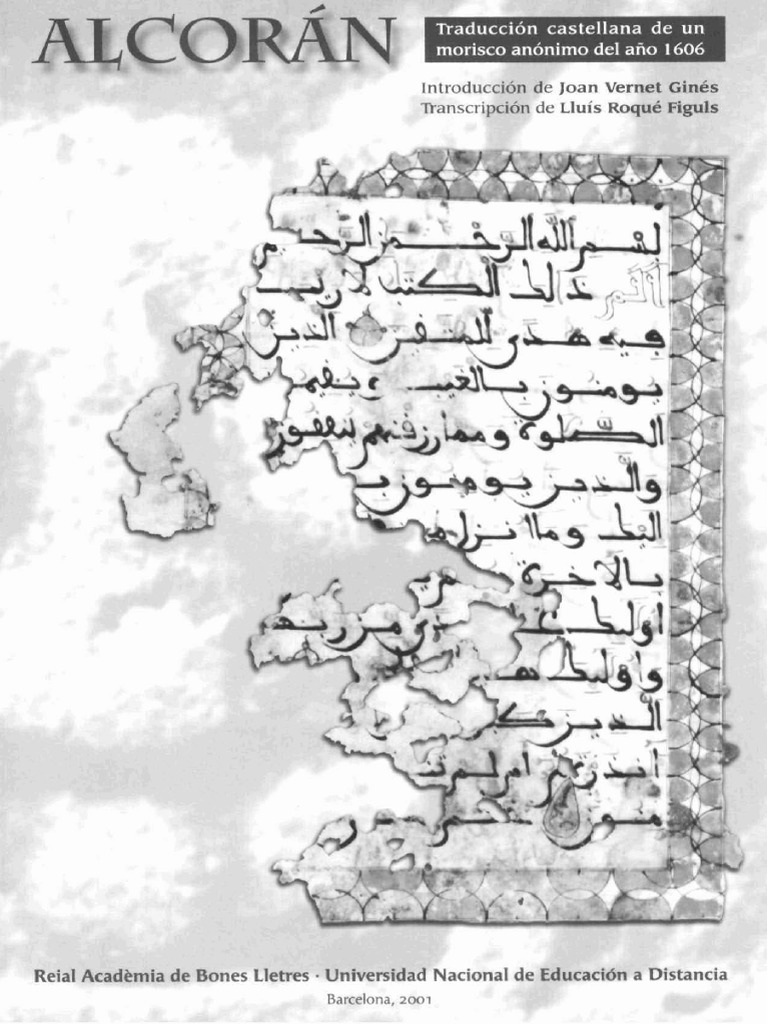 ALCORÁN
Traducción castellana de un
morisco anónimo del año 1606
Introducción de Joan Vernet Ginés
Transcripción de Lluís Roqué Figuls
بسم الله الرحمن الرحيم
الم ذلك الكتب لا ريب
فيه هدى للمتقين الذين
يومنون بالغيب ويقيمو
الصلوة ومما رزقنهم ينفقون
والذين يومنون ب
اليك وما انزل م
بالاخرة
اوليك من ربهم
واوليك
الذين كفر
انذرتهم ام لم ت
منون
Reial Acadèmia de Bones Lletres · Universidad Nacional de Educación a Distancia
Barcelona, 2001